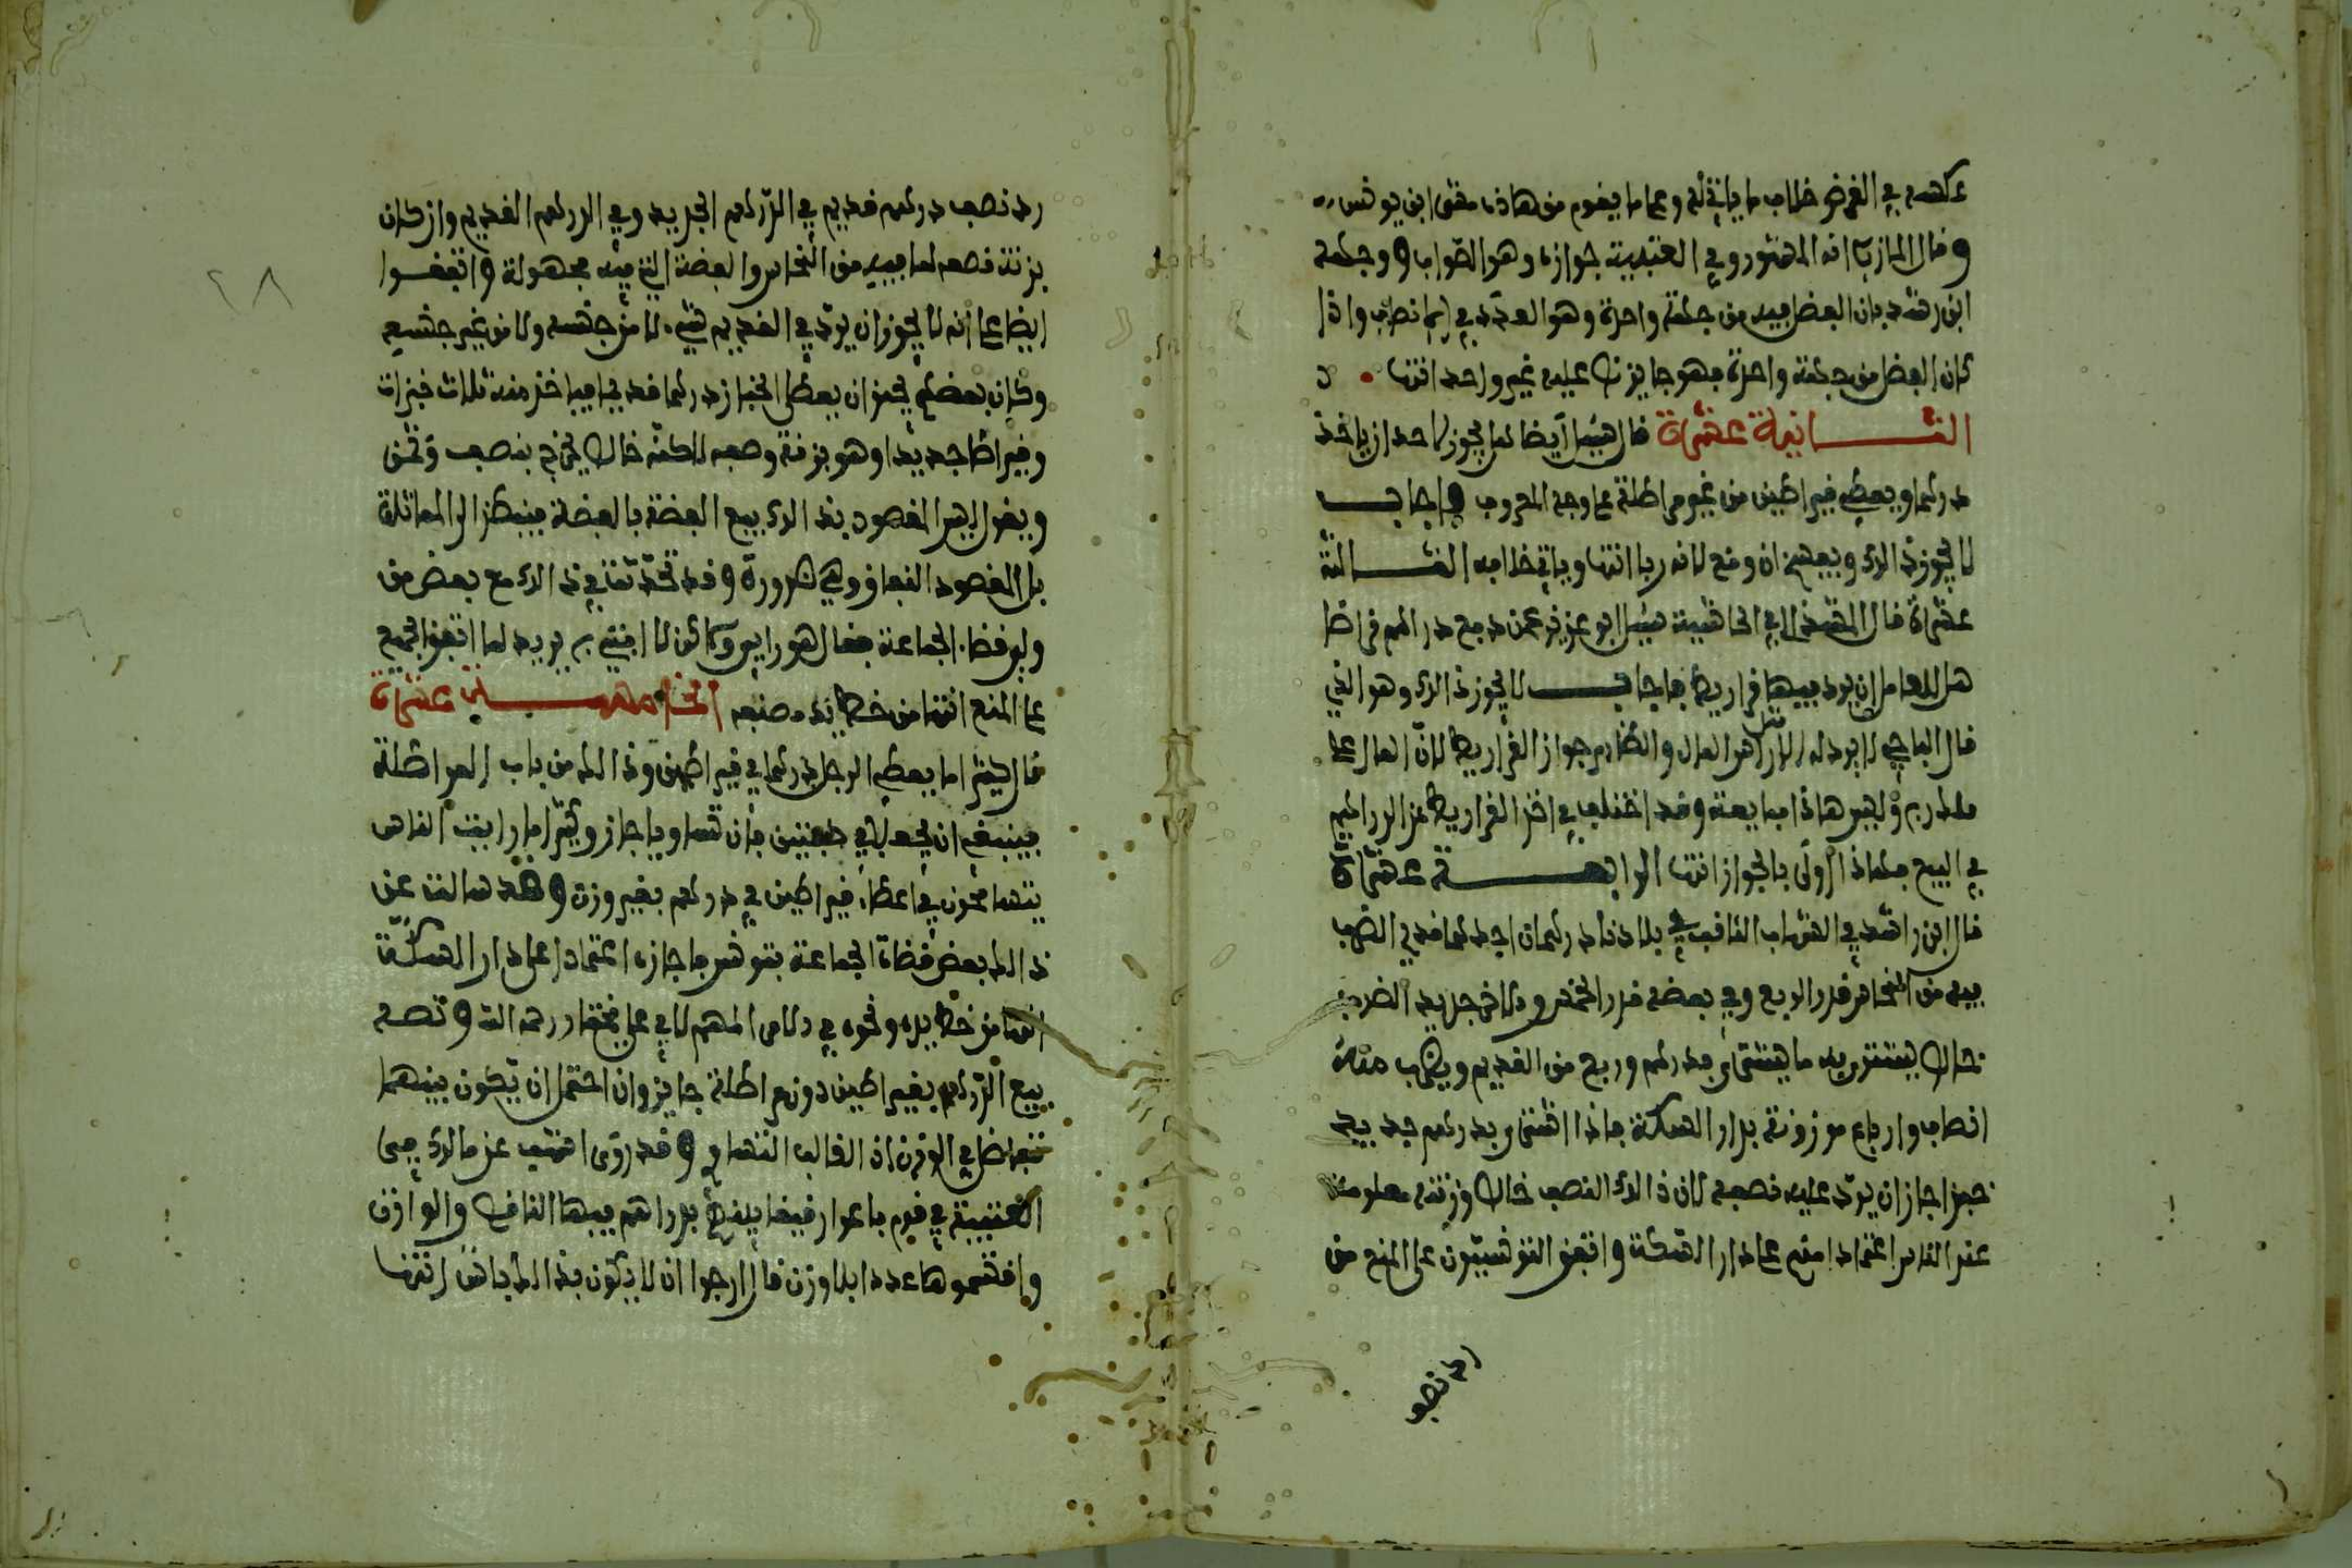 عكسه في القرض خلاف ما ياتي له وعلى ما يقوم من هاذه مشى ابن يونس
وقال المازري انه المشهور وفي العتبية جوازه وهو الصواب ووجهه
ابن رشد بان الفضل فيه من جهة واحدة وهو العدد في انصاف واذا
كان الفضل من جهة واحدة فهو جايز نص عليه غير واحد انتهى
الثانية عشرة قال سئل ايضا هل يجوز لاحد ان ياخذ
درهما ويعطي قيراطين من غير مراطلة على وجه المعروف فاجاب
لا يجوز ذالك ويفسخ ان وقع لانه ربا انتهى وياتي خلافه الثالثة
عشرة قال المشذالي في الحاشية سئل ابو عزيز عمن دفع دراهم قراضا
هل للعامل ان يرد فيها قراريط فاجاب لا يجوز ذالك وهو الذي
قال الباجي لا يرد له الا مثل راس المال والظاهر جواز القراريط لان المال على
ملك ربه وليس هاذا مبايعة وقد اختلف في اخذ القراريط عن الدراهم
في البيع فهاذا اولى بالجواز انتهى الرابعة عشرة
قال ابن راشد في الشهاب الثاقب في بلادنا درهمان احدهما قديم الضرب
فيه من النحاس قدر الربع وفي بعضه قدر الخمس والاخر جديد الضرب
خالص يشترى به ما يشترى بدرهم وربع من القديم ويضرب منه
انصاف وارباع موزونة بدار السكة فاذا اشترى بدرهم جديد
خبزا جاز ان يرد عليه نصفه لان ذالك النصف خالص وزنته معلومة
عند الناس اعتمادا منهم على دار السكة واتفق التونسيون على المنع من
رد نصف
رد نصف درهم قديم في الدرهم الجديد وفي الدرهم القديم وان كان
بزنة نصفه لما فيه من النحاس والفضة التي فيه مجهولة واتفقوا
ايضا على انه لا يجوز ان يرد في القديم شيء لا من جنسه ولا من غير جنسه
وكان بعضهم يجيز ان يعطي الخباز درهما قديما فياخذ منه ثلاث خبزات
وقيراطا جديدا وهو بزنة نصفه لاكنه خالص يخرج بنصف وثمن
ويقول ليس المقصود بذالك بيع الفضة بالفضة فينظر الى المماثلة
بل المقصود النفاق وهي ضرورة وقد تحدثت في ذالك مع بعض من
ولي قضاء الجماعة فقال هو رايي ولاكن لا افتي به يريد لما اتفق الجميع
على المنع انتهى من خط يد مصنفه الخامسة عشرة
قال كثيرا ما يعطي الرجل درهما في قيراطين وذالك من باب المراطلة
فينبغي ان يجعل في كفتين فان تساويا جاز وكثيرا ما رايت الناس
يتسامحون في اعطاء قيراطين في درهم بغير وزن وقد سالت عن
ذالك بعض قضاة الجماعة بتونس فاجازه اعتمادا على دار السكة
انتهى من خط يده ونحوه في كلام المسهلالي على مختصار رحمه الله ونصه
بيع الدرهم بقيراطين دون مراطلة جايز وان احتمل ان يكون بينهما
تفاضل في الوزن اذ الغالب التساوي وقد روى اشهب عن مالك في
العتبية في قوم باعوا رقيقا بدراهم فيها الناقص والوازن
واقتسموها عددا بلا وزن قال ارجوا ان لا يكون بذالك باس انتهى